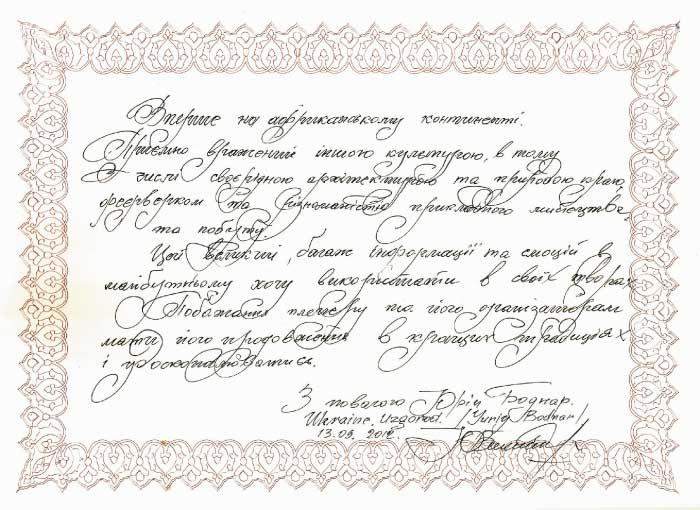 Вперше на африканському континенті.
Приємно вражений іншою культурою, в тому
числі своєрідною архітектурою та природою краю,
феєрверком та різноманістю прикладного мистецтва
та побуту.
Цей великий, багаж інформації та емоцій в
майбутньому хочу використати в своїх творах.
Побажання пленеру та його організаторам
мати його продовження в кращих традиціях
і удосконалюватись.
З повагою Юрій Боднар.
Ukraine, Uzgorod. /Yurij Bodnar/
13.09.201